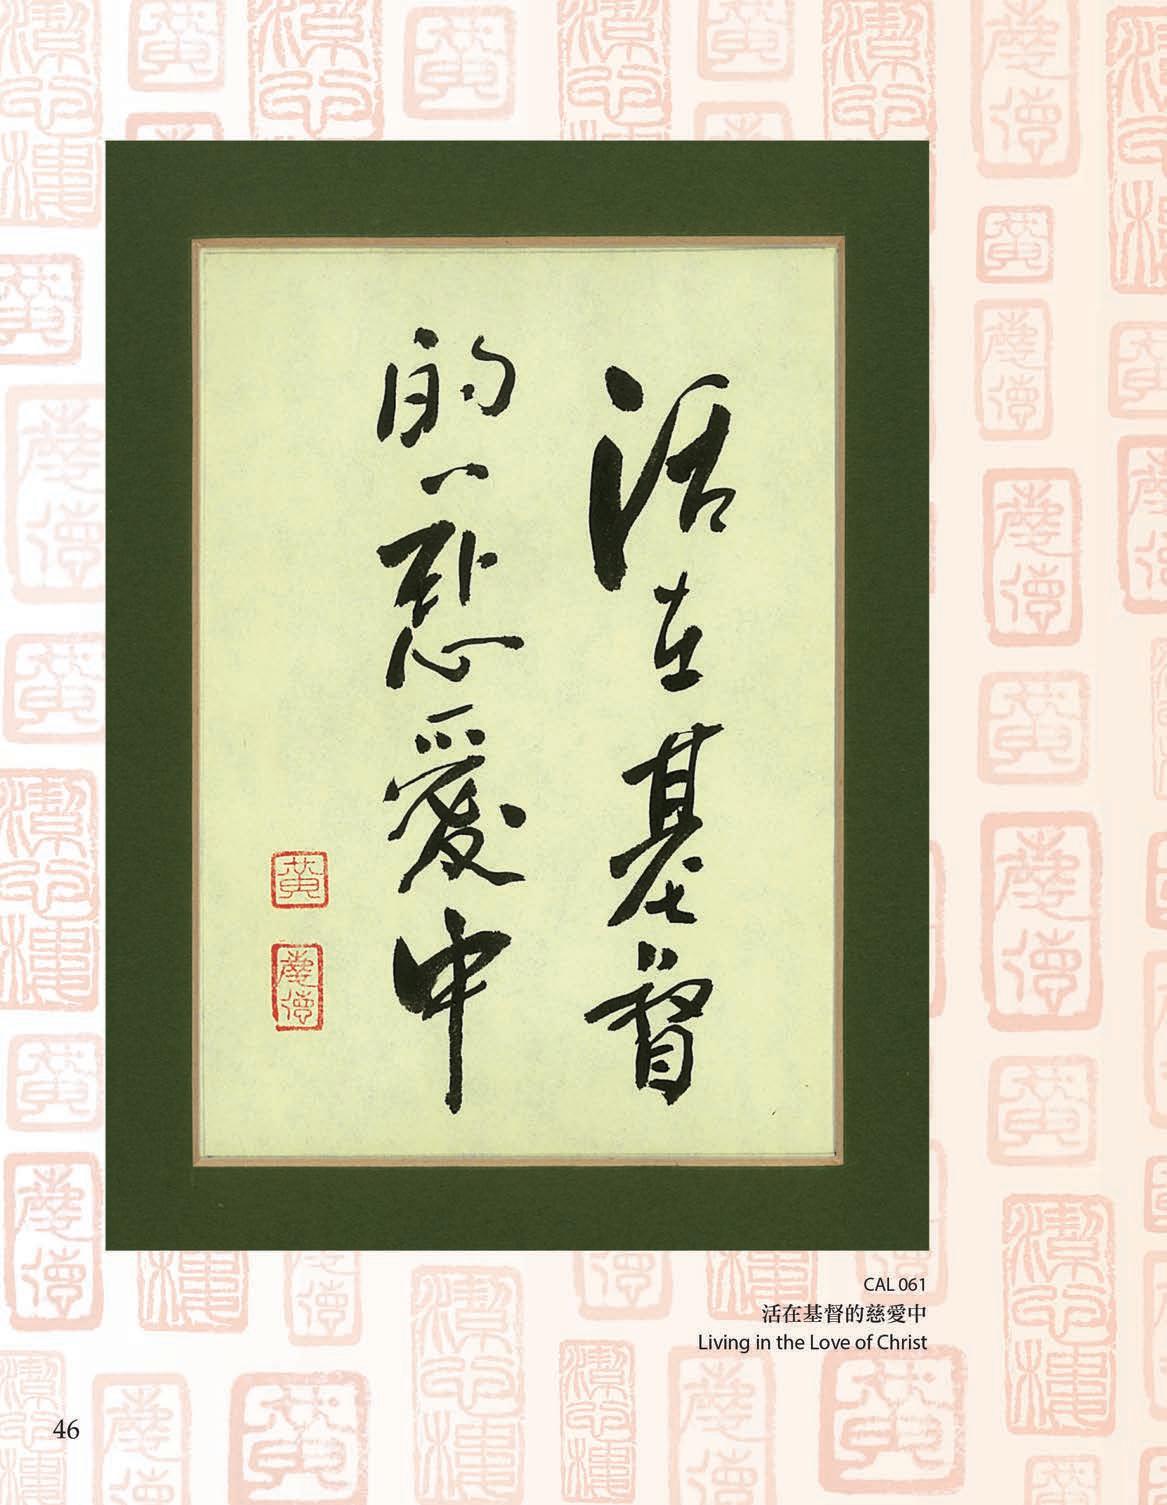 活在基督
的慈愛中
黃
慶德
CAL 061
活在基督的慈愛中
Living in the Love of Christ
46